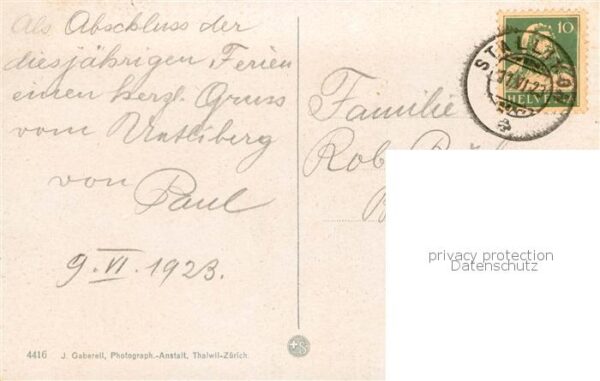 Als Abschluss der
diesjährigen Ferien
einen herzl. Gruss
vom Uetliberg
von Paul
9. VI. 1923.
Familie
Rob.
10
STALLIKON
HELVETIA
privacy protection
Datenschutz
4416 J. Gaberell, Photograph.-Anstalt, Thalwil-Zürich.